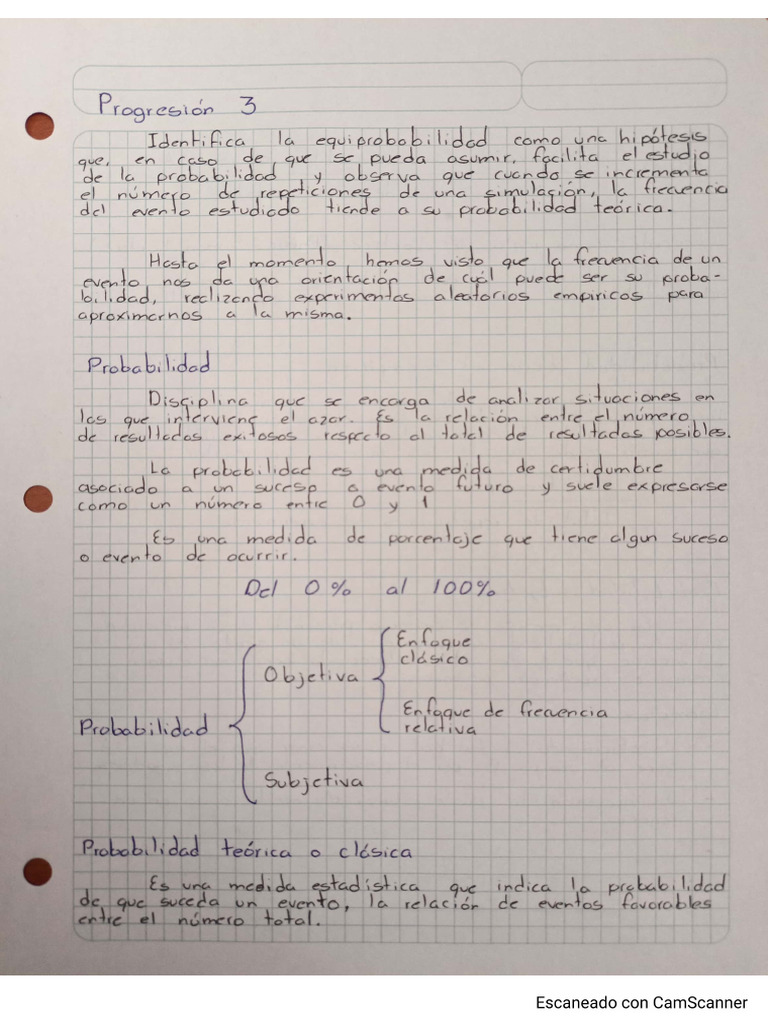 Progresión 3
Identifica la equiprobabilidad como una hipótesis
que, en caso de que se pueda asumir, facilita el estudio
de la probabilidad y observa que cuando se incrementa
el número de repeticiones de una simulación, la frecuencia
del evento estudiado tiende a su probabilidad teórica.
Hasta el momento, hemos visto que la frecuencia de un
evento nos da una orientación de cuál puede ser su proba-
bilidad, realizando experimentos aleatorios empiricos para
aproximarnos a la misma.
Probabilidad
Disciplina que se encarga de analizar situaciones en
las que interviene el azar. Es la relación entre el número
de resultados exitosos respecto al total de resultados posibles.
La probabilidad es una medida de certidumbre
asociado a un suceso o evento futuro y suele expresarse
como un número entre 0 y 1
Es una medida de porcentaje que tiene algun suceso
o evento de ocurrir.
Del 0% al 100%
Enfoque
clásico
Objetiva
Enfoque de frecuencia
relativa
Probabilidad
Subjetiva
Probabilidad teórica o clásica
Es una medida estadística que indica la probabilidad
de que suceda un evento, la relación de eventos favorables
entre el número total.
Escaneado con CamScanner